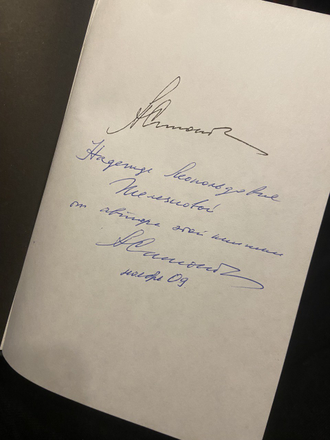 АСимонов
Надежде Леопольдовне
Железновой
от автора этой книжки
АСимонов
ноябрь 09